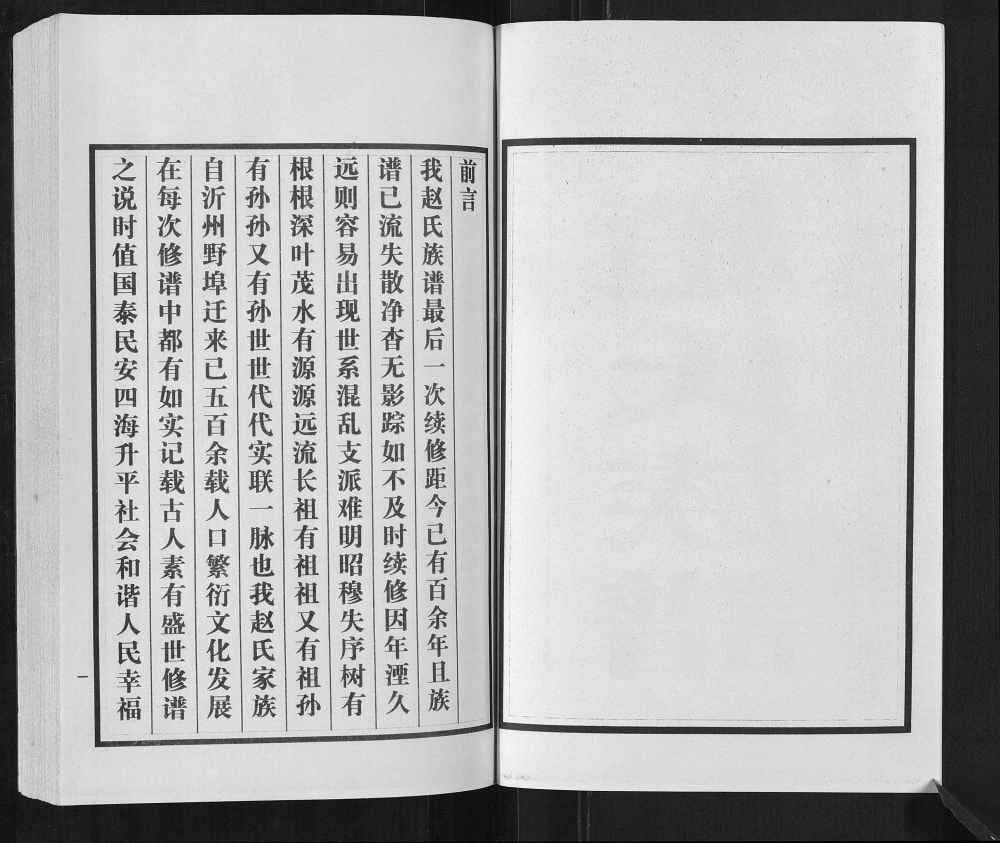 前言
我赵氏族谱最后一次续修距今已有百余年且族
谱已流失散净杳无影踪如不及时续修因年湮久
远则容易出现世系混乱支派难明昭穆失序树有
根根深叶茂水有源源远流长祖有祖祖又有祖孙
有孙孙又有孙世世代代实联一脉也我赵氏家族
自沂州野埠迁来已五百余载人口繁衍文化发展
在每次修谱中都有如实记载古人素有盛世修谱
之说时值国泰民安四海升平社会和谐人民幸福
一